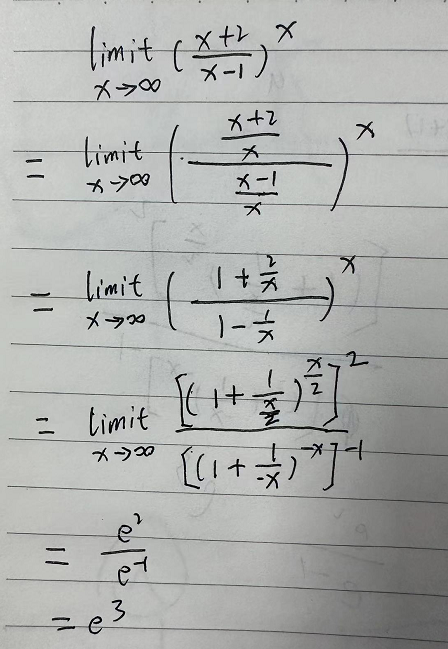 limit x→∞ ((x+2)/(x-1))^x
= limit x→∞ (((x+2)/x)/((x-1)/x))^x
= limit x→∞ ((1+2/x)/(1-1/x))^x
= limit x→∞ [(1+1/(x/2))^(x/2)]^2/[(1+1/(-x))^(-x)]^(-1)
= e^2/e^(-1)
= e^3